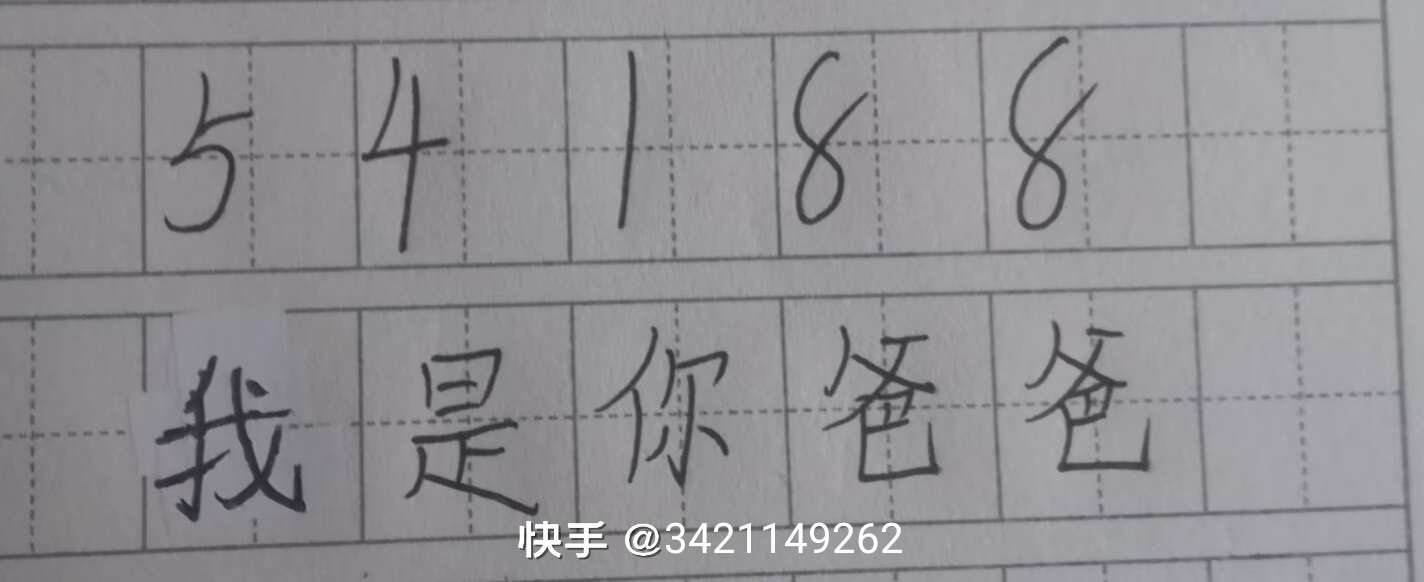 54188
我是你爸爸
快手 @3421149262